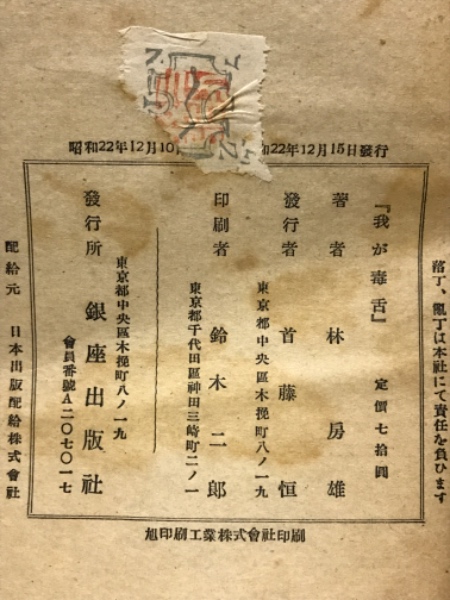 昭和22年12月10
和22年12月15日發行
落丁、亂丁は本社にて責任を負ひます
『我が毒舌』 定價七拾圓
著者 林房雄
發行者 首藤恒
東京都中央區木挽町八ノ一九
印刷者 鈴木二郎
東京都千代田區神田三崎町二ノ一
發行所 銀座出版社
東京都中央區木挽町八ノ一九
會員番號A二〇七〇一七
配給元 日本出版配給株式會社
旭印刷工業株式會社印刷